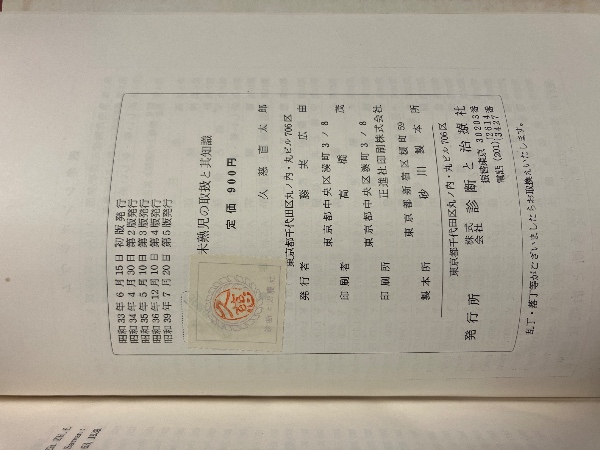 昭和33年6月15日 初版発行
昭和34年4月30日 第2版発行
昭和35年5月10日 第3版発行
昭和36年12月10日 第4版発行
昭和39年7月20日 第5版発行
未熟児の取扱と其知識
定価 900円
久慈直太郎
東京都千代田区丸ノ内・丸ビル706区
発行者 藤実広由
東京都中央区湊町3ノ8
印刷者 高橋茂
東京都中央区湊町3ノ8
印刷所 正進社印刷株式会社
東京都新宿区榎町59
製本所 砂川製本所
東京都千代田区丸ノ内・丸ビル706区
発行所 株式会社 診断と治療社
振替東京 30203番
電話(201)2614番
3427
乱丁・落丁等がございましたらお取換えいたします。